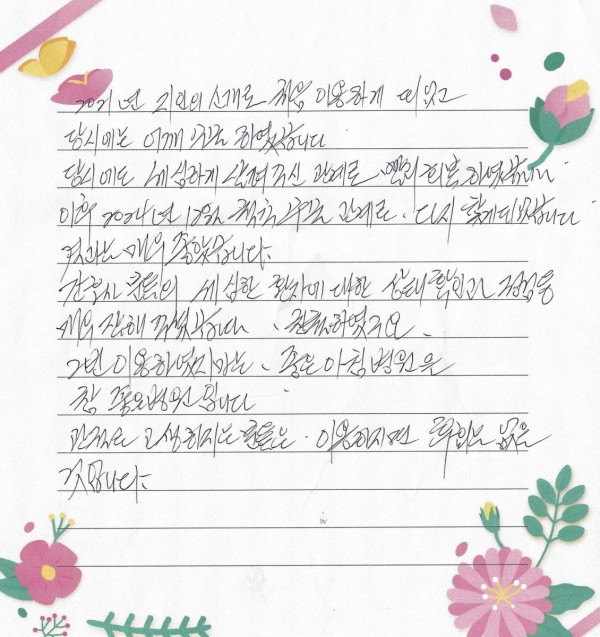 2021년 지인의 소개로 처음 이용하게 되었고
당시에는 어깨 수술 하였습니다
당시에도 세심하게 살펴주신 관계로 회복 하였습니다
이후 2024년 12월 척추 수술 관계로. 다시 찾게되었습니다
결과는 매우 좋았습니다.
간호사 분들의 세심한 환자에 대한 상태확인과 점검등
매우 잘해 주셨습니다. 친절하였구요.
2번 이용하였지만는. 좋은아침병원은
참 좋은병원 입니다
관절로 고생하시는 분들은. 이용하시면 후회는 없을
것입니다.